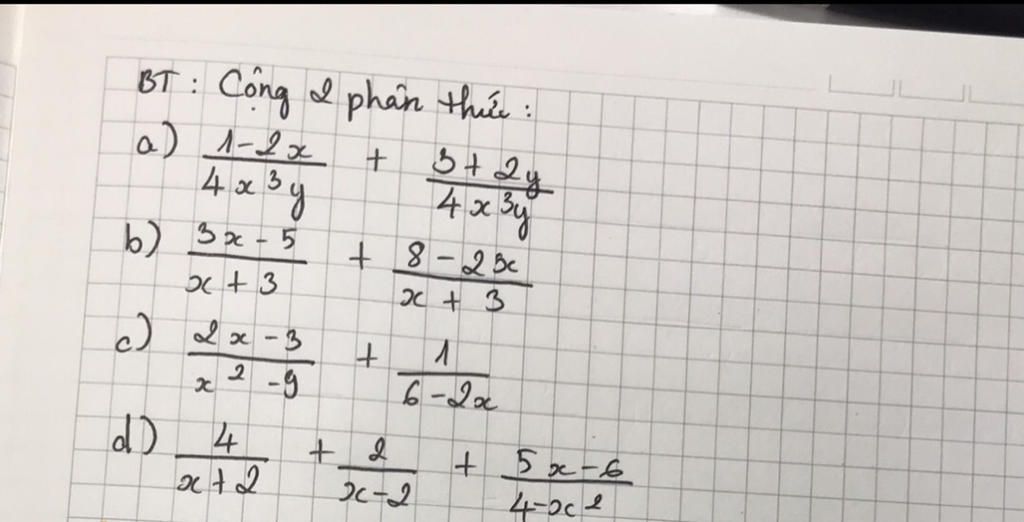 BT : Cộng 2 phân thức :
a) (1-2x)/(4x³y) + (3+2y)/(4x³y)
b) (3x-5)/(x+3) + (8-2x)/(x+3)
c) (2x-3)/(x²-9) + 1/(6-2x)
d) 4/(x+2) + 2/(x-2) + (5x-6)/(4-x²)